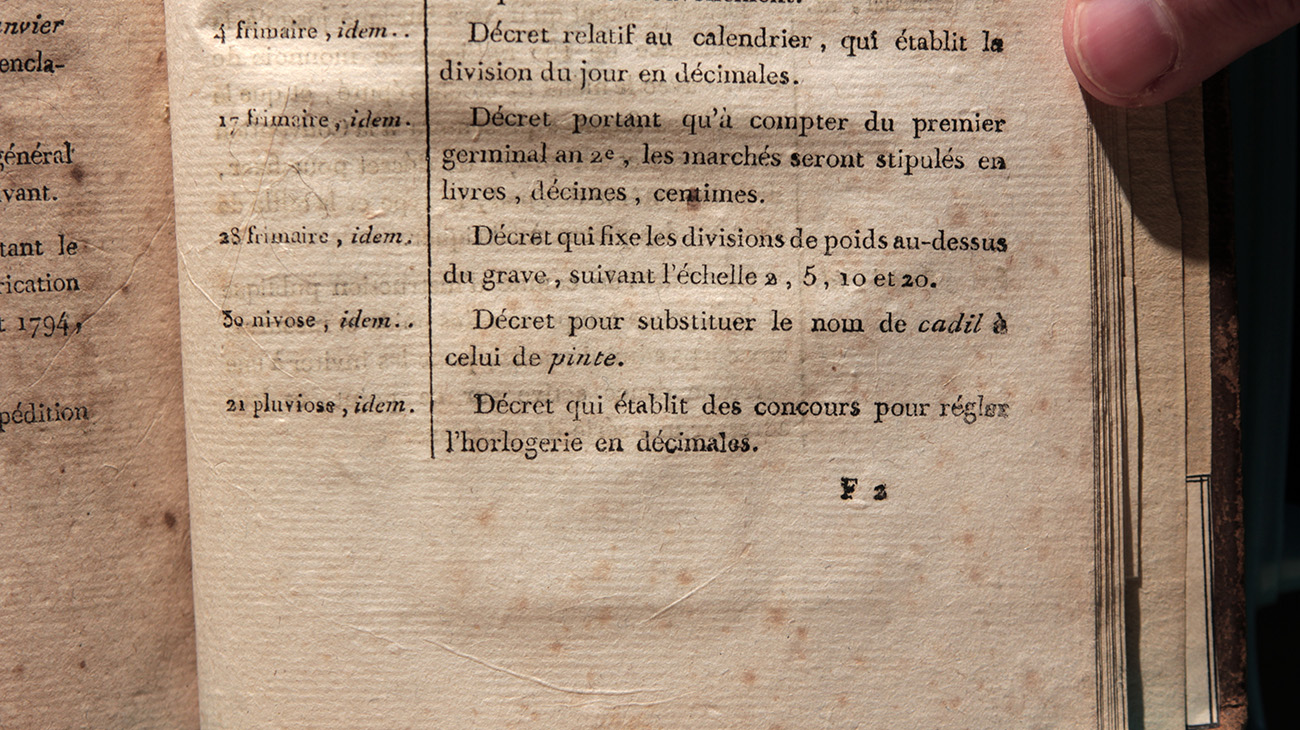 nvier
encla-
général
vant.
tant le
rication
t 1794,
pédition
4 frimaire, idem..
Décret relatif au calendrier, qui établit la
division du jour en décimales.
17 frimaire, idem.
Décret portant qu'à compter du premier
germinal an 2e, les marchés seront stipulés en
livres, décimes, centimes.
28 frimaire, idem.
Décret qui fixe les divisions de poids au-dessus
du grave, suivant l'échelle 2, 5, 10 et 20.
30 nivose, idem..
Décret pour substituer le nom de cadil à
celui de pinte.
21 pluviose, idem.
Décret qui établit des concours pour régler
l'horlogerie en décimales.
F 2